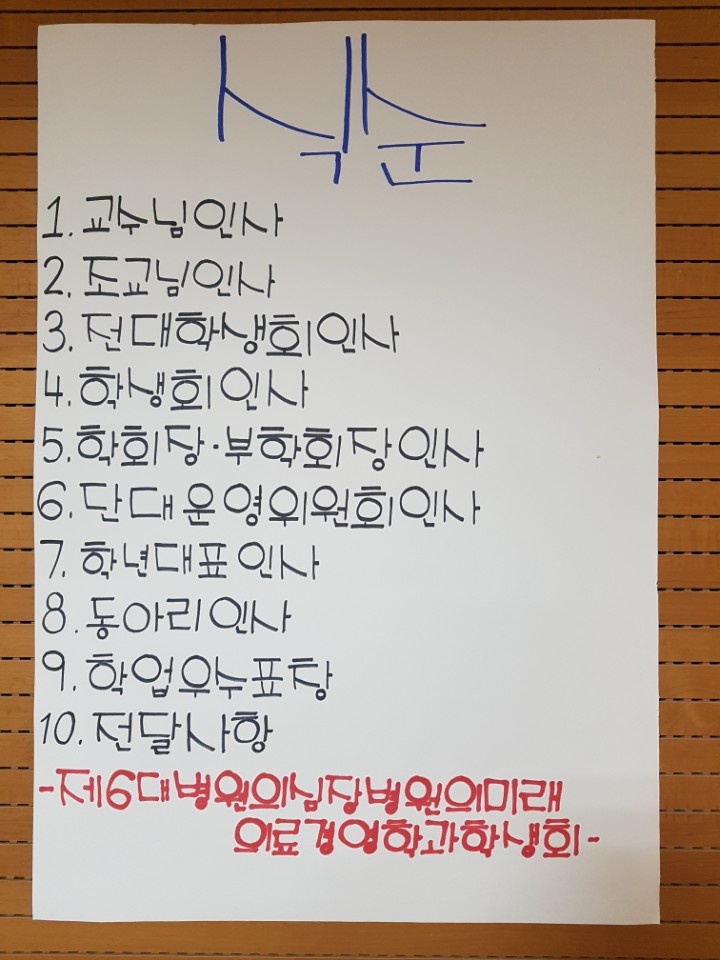 식순
1. 교수님인사
2. 조교님인사
3. 전대학생회인사
4. 학생회인사
5. 학회장·부학회장인사
6. 단대운영위원회인사
7. 학년대표인사
8. 동아리인사
9. 학업우수표창
10. 전달사항
-제6대병원의심장병원의미래
의료경영학과학생회-